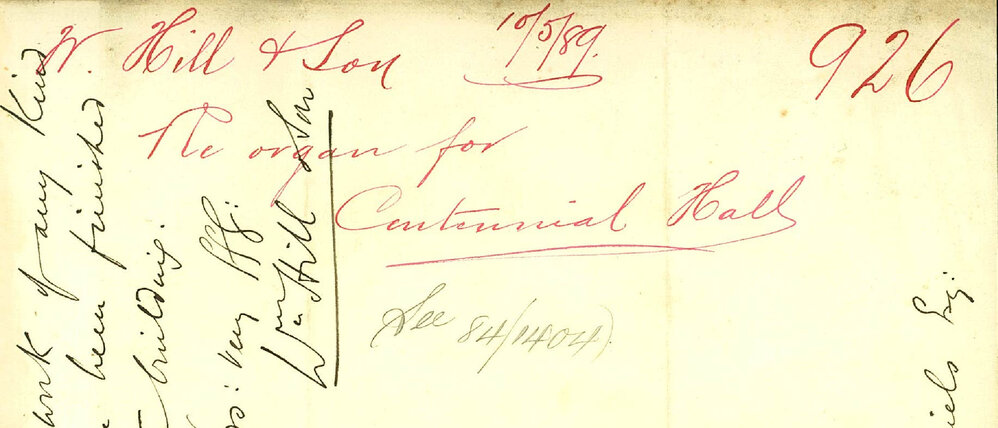 W. Hill & Son 10/5/89. 926
The organ for
Centennial Hall
See 84/1404)
work of any kind
been finished
building.
: very ffy:
Wm Hill & Son
iels Esq: